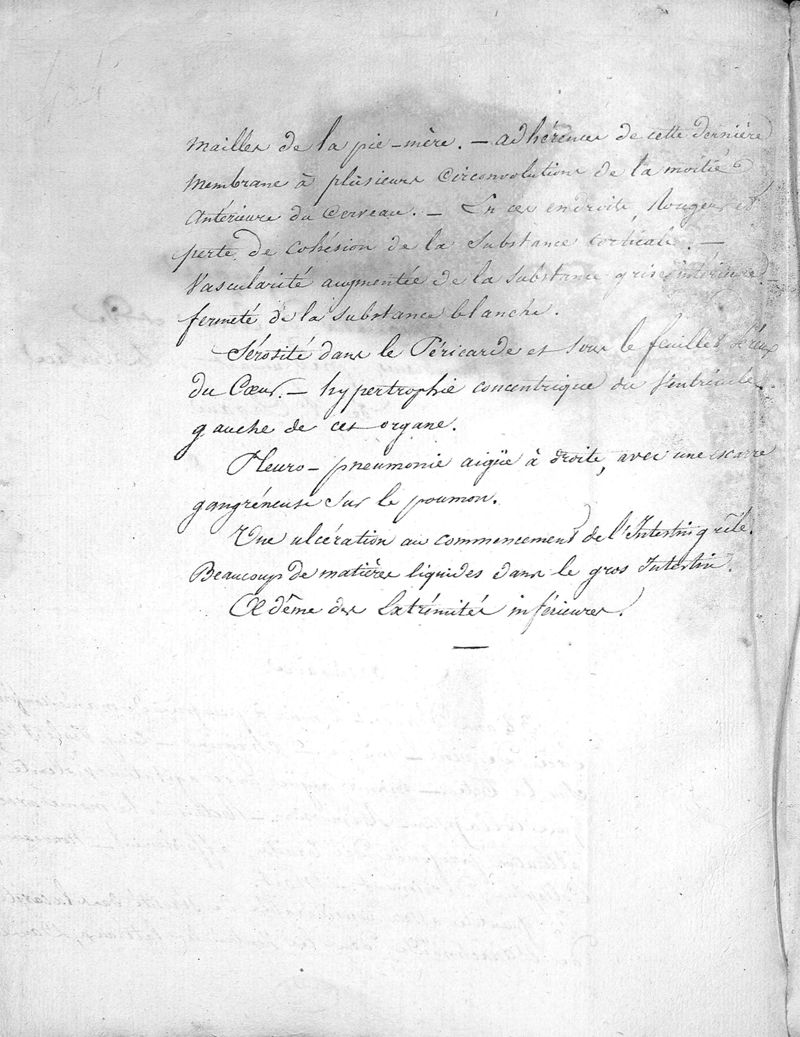 mailles de la pie-mère. — adhérences de cette dernière
membrane à plusieurs circonvolutions de la moitié
antérieure du cerveau. — En ces endroits, Rougeur et
perte de cohésion de la substance corticale. —
Vascularité augmentée de la substance grise intérieure
fermeté de la substance blanche.
Sérosité dans le Péricarde et sous le feuillet séreux
du Cœur. — hypertrophie concentrique du Ventricule
gauche de cet organe.
Pleuro-pneumonie aigüe à droite, avec une escarre
gangréneuse sur le poumon.
Une ulcération au commencement de l'Intestin grêle.
Beaucoup de matières liquides dans le gros Intestin.
Œdême des Extrémités inférieures.